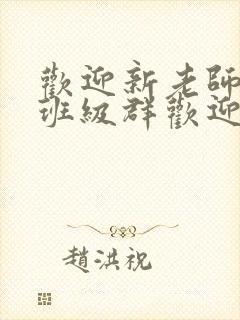 歡迎新老師
班級群歡迎
趙洪祝